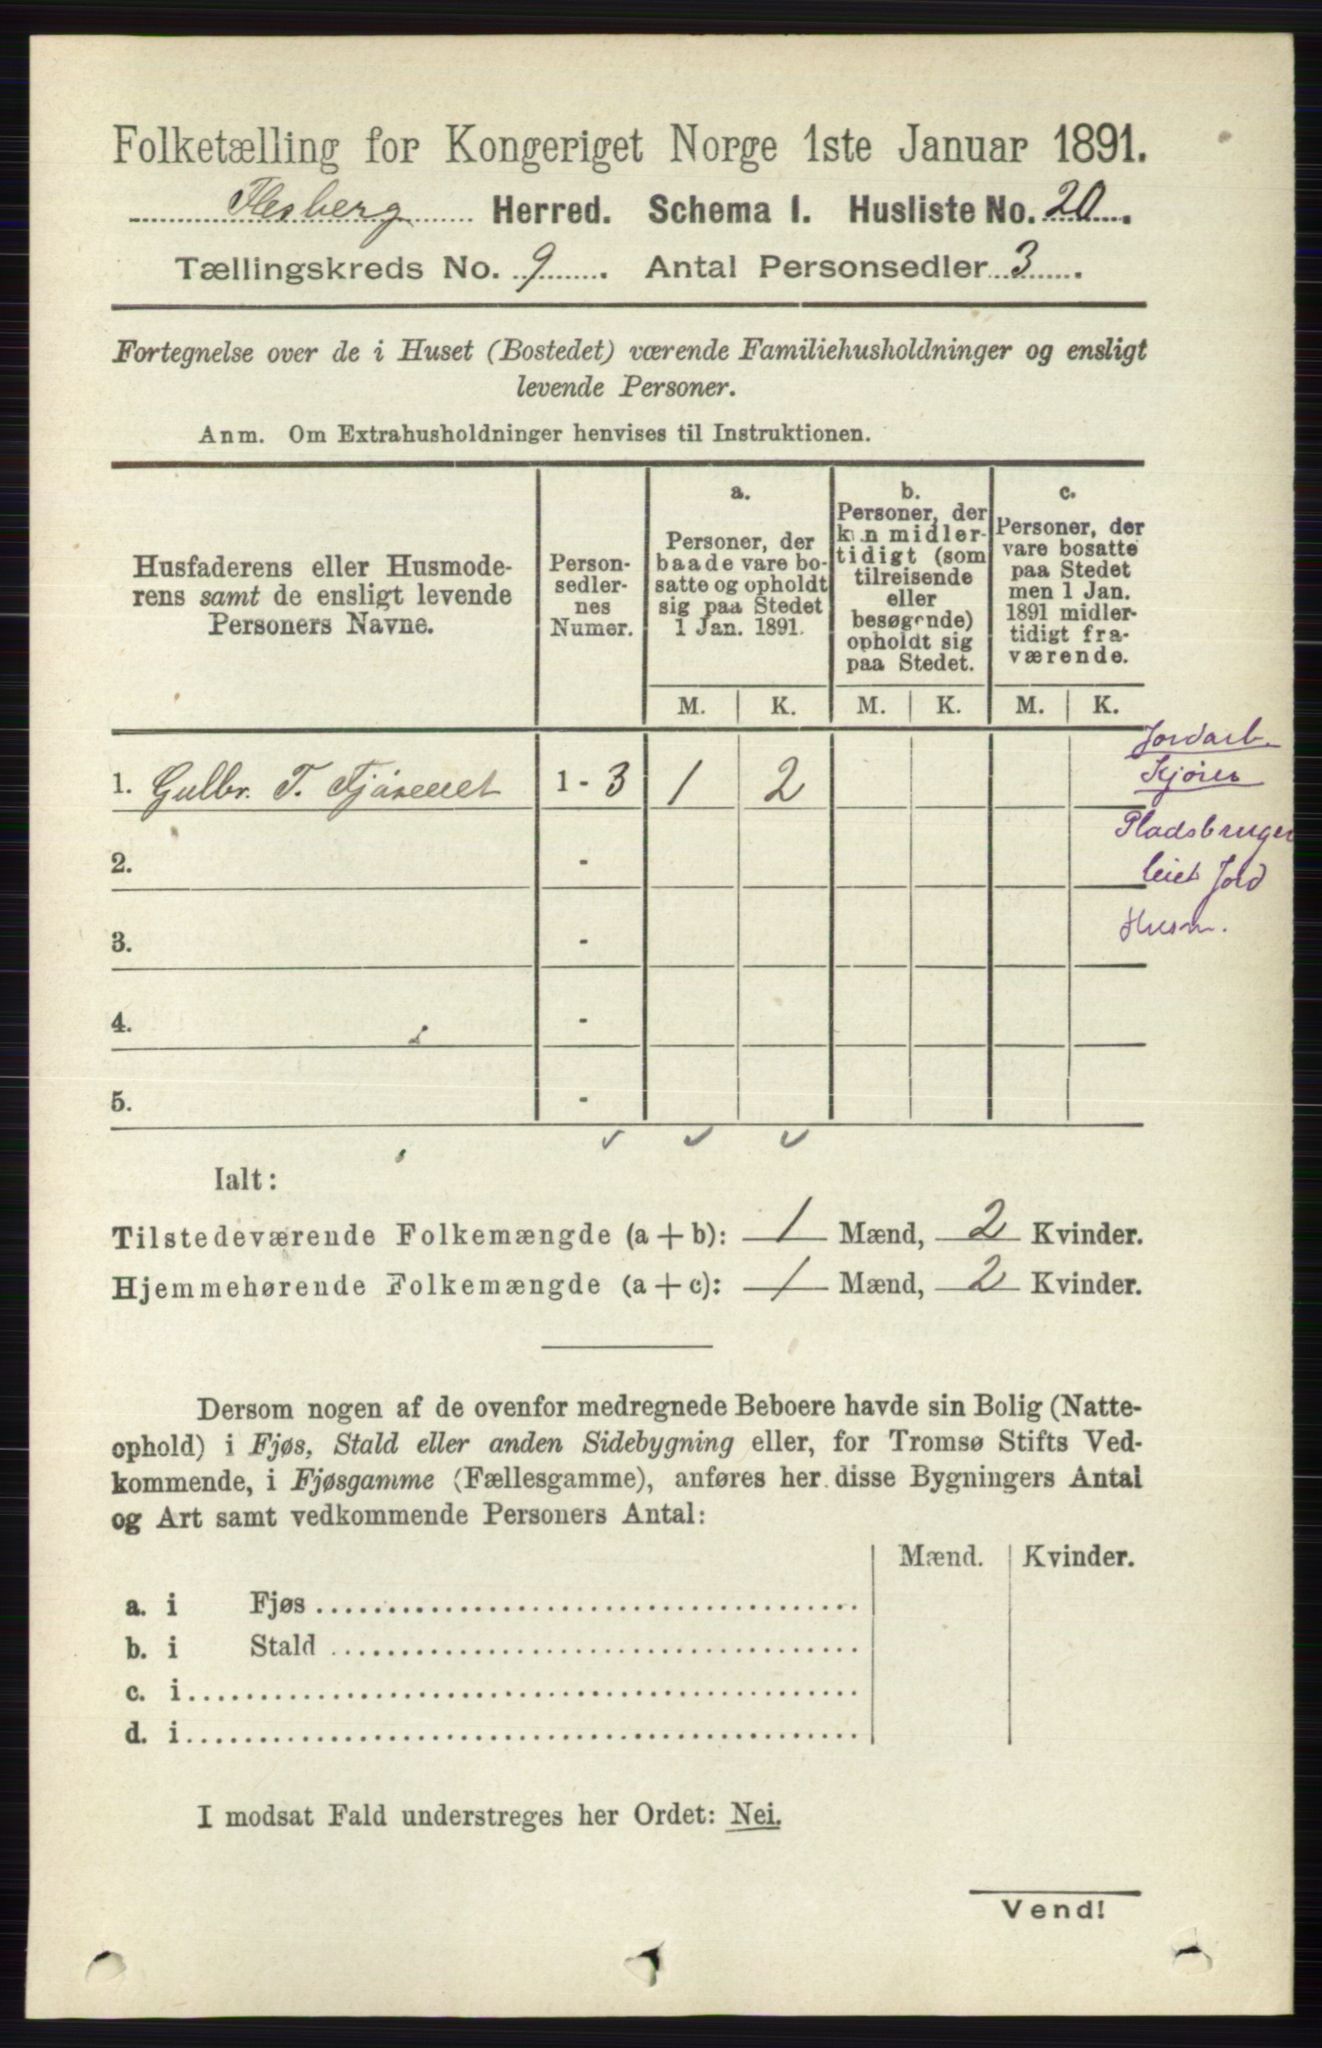 Folketælling for Kongeriget Norge 1ste Januar 1891.
Flesberg Herred. Schema I. Husliste No. 20.
Tællingskreds No. 9. Antal Personsedler 3.
Fortegnelse over de i Huset (Bostedet) værende Familiehusholdninger og ensligt
levende Personer.
Anm. Om Extrahusholdninger henvises til Instruktionen.
Husfaderens eller Husmode-
rens samt de ensligt levende
Personers Navne.
Person-
sedler-
nes
Numer.
a.
Personer, der
baade vare bo-
satte og opholdt
sig paa Stedet
1 Jan. 1891.
b.
Personer, der
kun midler-
tidigt (som
tilreisende
eller
besøgende)
opholdt sig
paa Stedet.
c.
Personer, der
vare bosatte
paa Stedet
men 1 Jan.
1891 midler-
tidigt fra-
værende.
M. K. M. K. M. K.
1. Gulbr. T. 1 - 3 1 2
2. -
3. -
4. -
5. -
Jordarb.
Kjører
Pladsbruger
leiet Jord
Husm.
Ialt:
Tilstedeværende Folkemængde (a + b): 1 Mænd, 2 Kvinder.
Hjemmehørende Folkemængde (a + c): 1 Mænd, 2 Kvinder.
Dersom nogen af de ovenfor medregnede Beboere havde sin Bolig (Natte-
ophold) i Fjøs, Stald eller anden Sidebygning eller, for Tromsø Stifts Ved-
kommende, i Fjøsgamme (Fællesgamme), anføres her disse Bygningers Antal
og Art samt vedkommende Personers Antal:
Mænd. Kvinder.
a. i Fjøs
b. i Stald
c. i
d. i
I modsat Fald understreges her Ordet: Nei.
Vend!